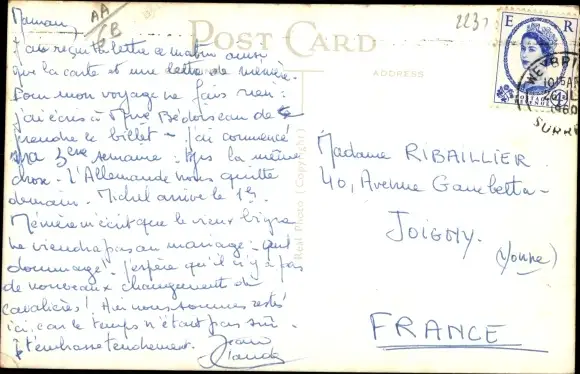 Maman,
J'ai reçu ta lettre ce matin ainsi
que la carte et une lettre de mémère.
Pour mon voyage ne fais rien :
j'ai écris à Mme Bédoiseau de
prendre le billet - j'ai commencé
ma 3ème semaine. la même
chose - L'Allemande nous quitte
demain. Michel arrive le
Mémère m'écrit que le vieux
ne viendra pas au mariage - quel
dommage ! - j'espère qu'il n'y a pas
de nouveaux changements de
cavalières ! Hier nous sommes restés
ici, car le temps n'était pas sûr -
Je t'embrasse tendrement.
Jean
Claude
AA
CB
POST CARD
ADDRESS
Real Photo (Copyright)
2237
E R
POSTAGE
REVENUE
WEYBRI
1960
SURR
Madame RIBAILLIER
40, Avenue Gambetta -
JOIGNY.
(Yonne)
FRANCE